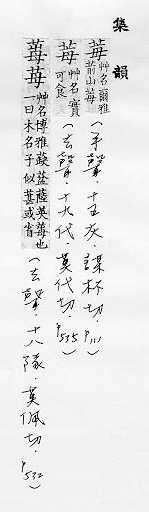 集韻
莓 艸名爾雅葥山莓 (平聲．十五灰．謀杯切．P111)
莓 艸名實可食 (去聲．十九代．莫代切．P535)
莓苺 艸名博雅蒛葐蔭英莓也一曰木名子似葚或省 (去聲．十八隊．莫佩切．P532)